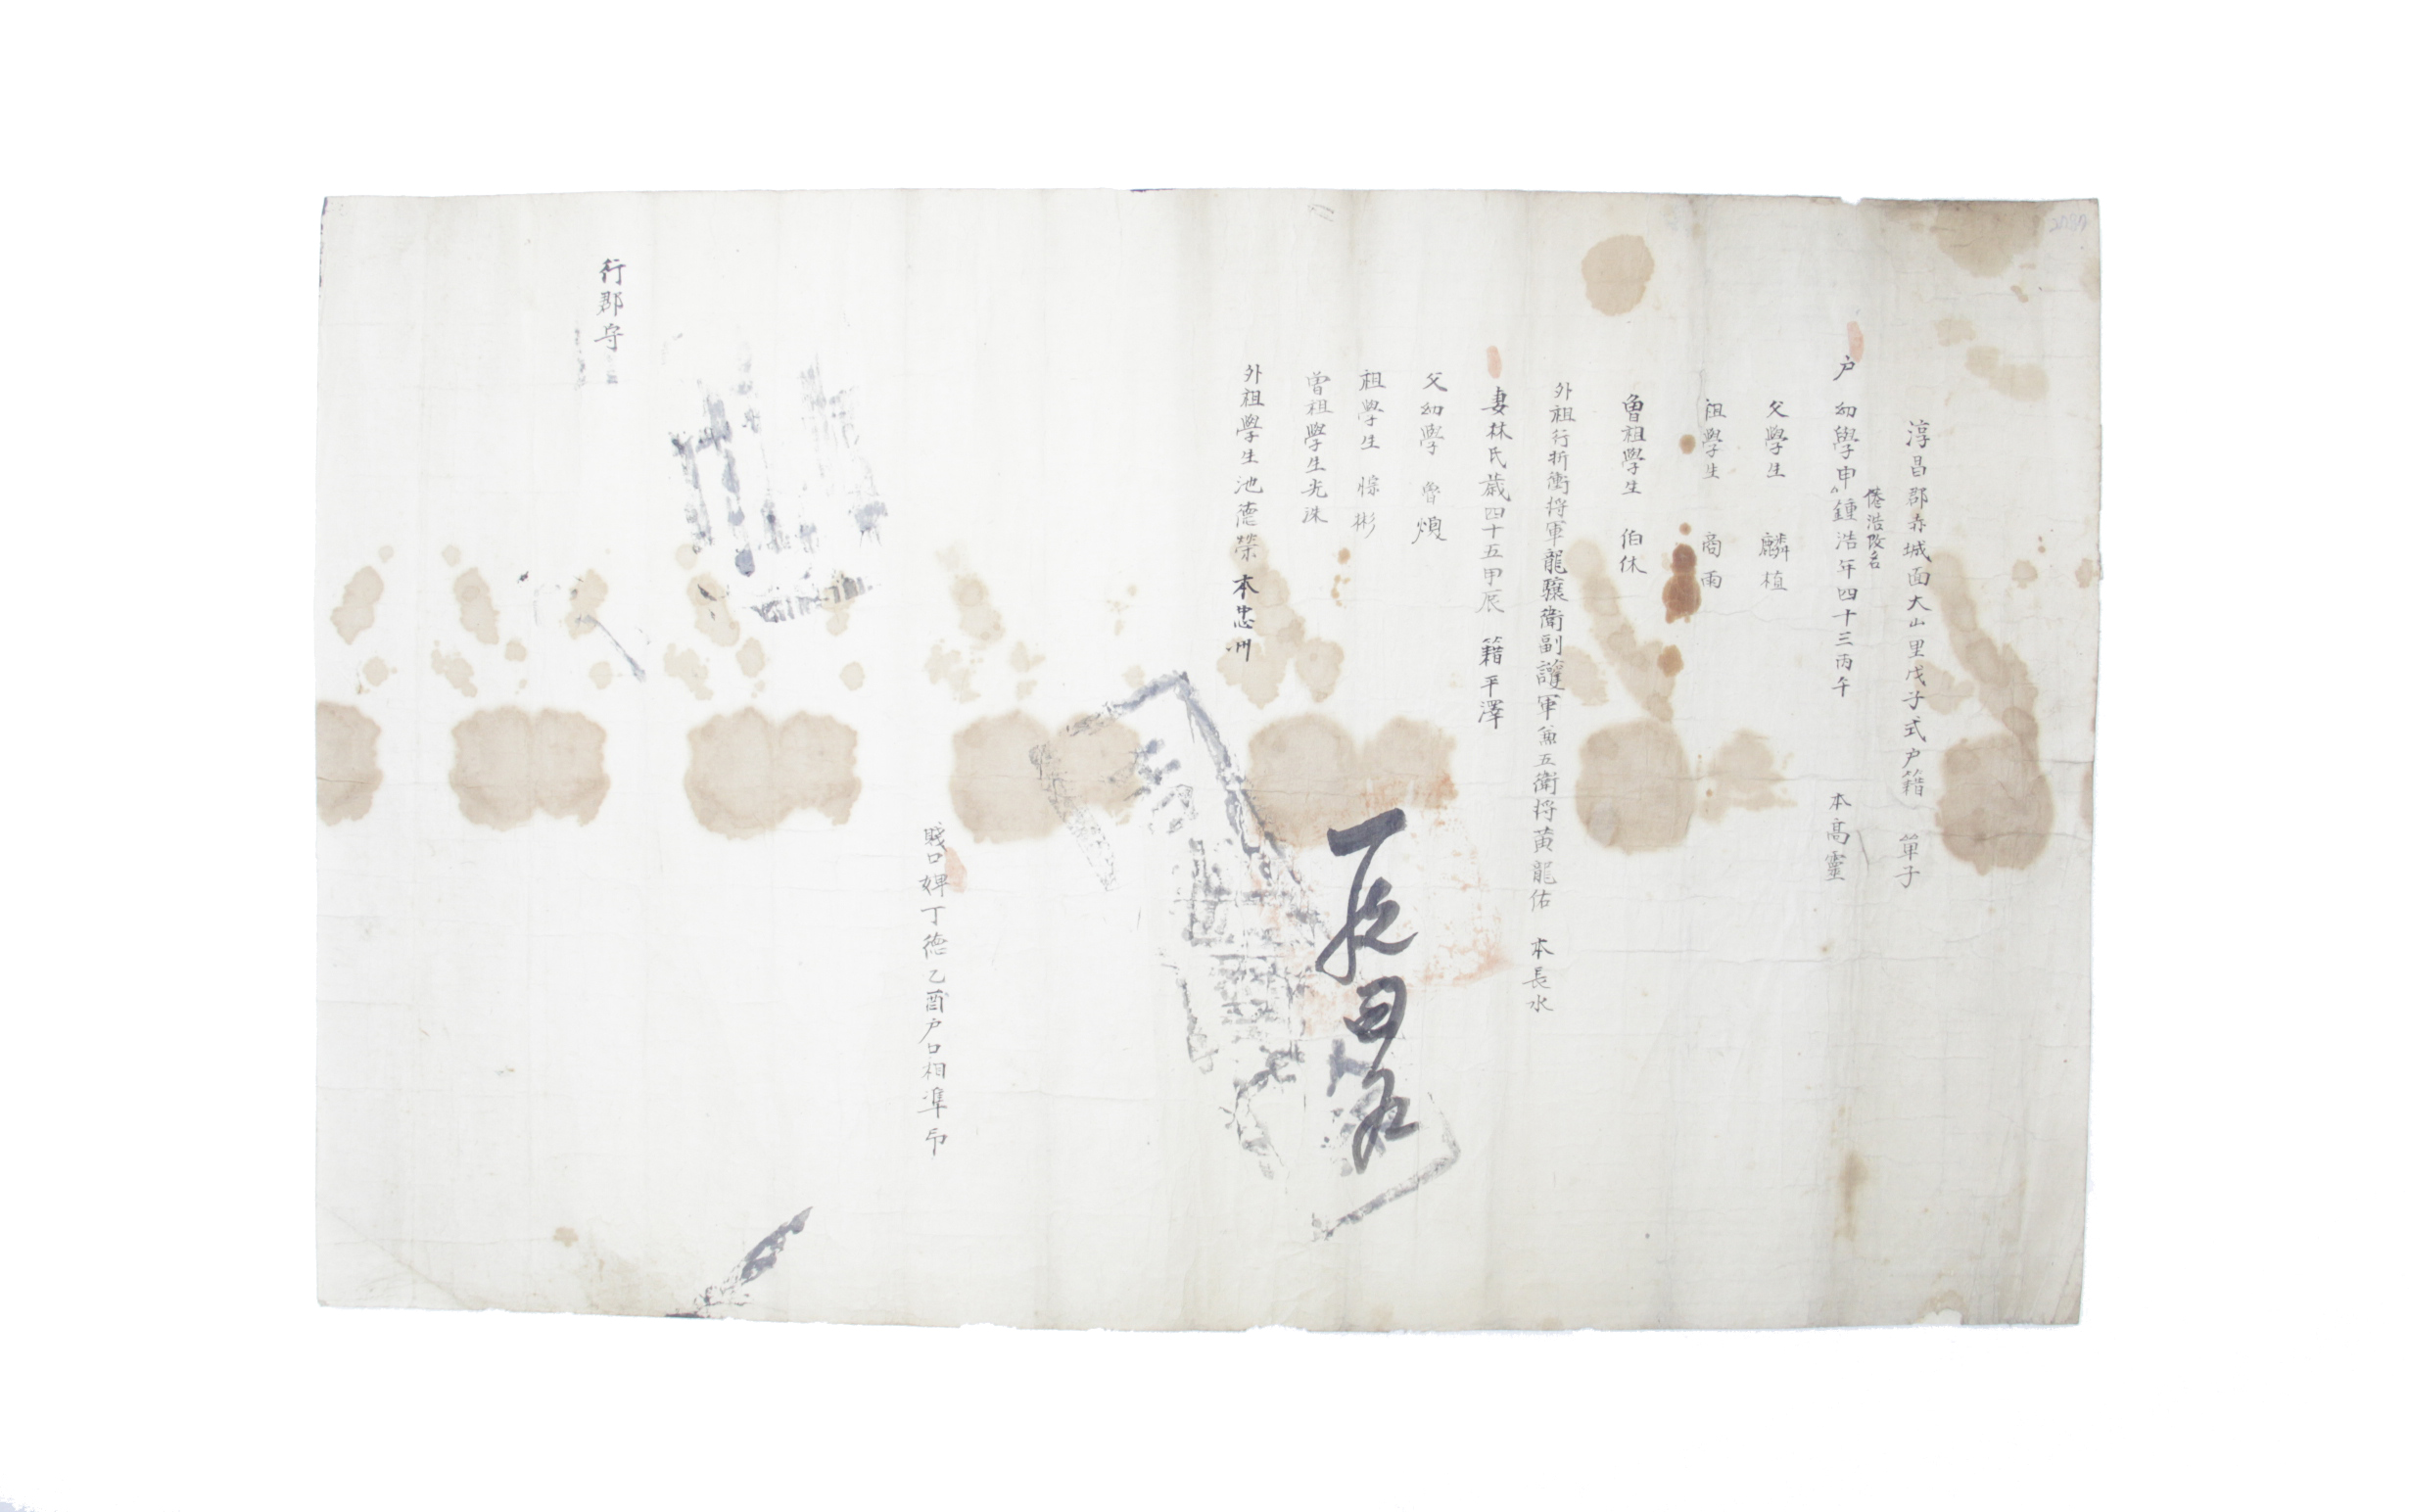 淳昌郡赤城面大山里戊子式户籍 單子
户 幼學申鍾浩年四十三丙午 本高靈
倦浩改名
父學生 麟植
祖學生 商雨
曾祖學生 伯休
外祖行折衝將軍龍驤衛副護軍兼五衛將黃龍佑 本長水
妻林氏歲四十五甲辰 籍平澤
父幼學 魯煩
祖學生 悰彬
曾祖學生光洙
外祖學生池德榮 本忠州
賤口婢丁德乙酉户口相準印
行郡守